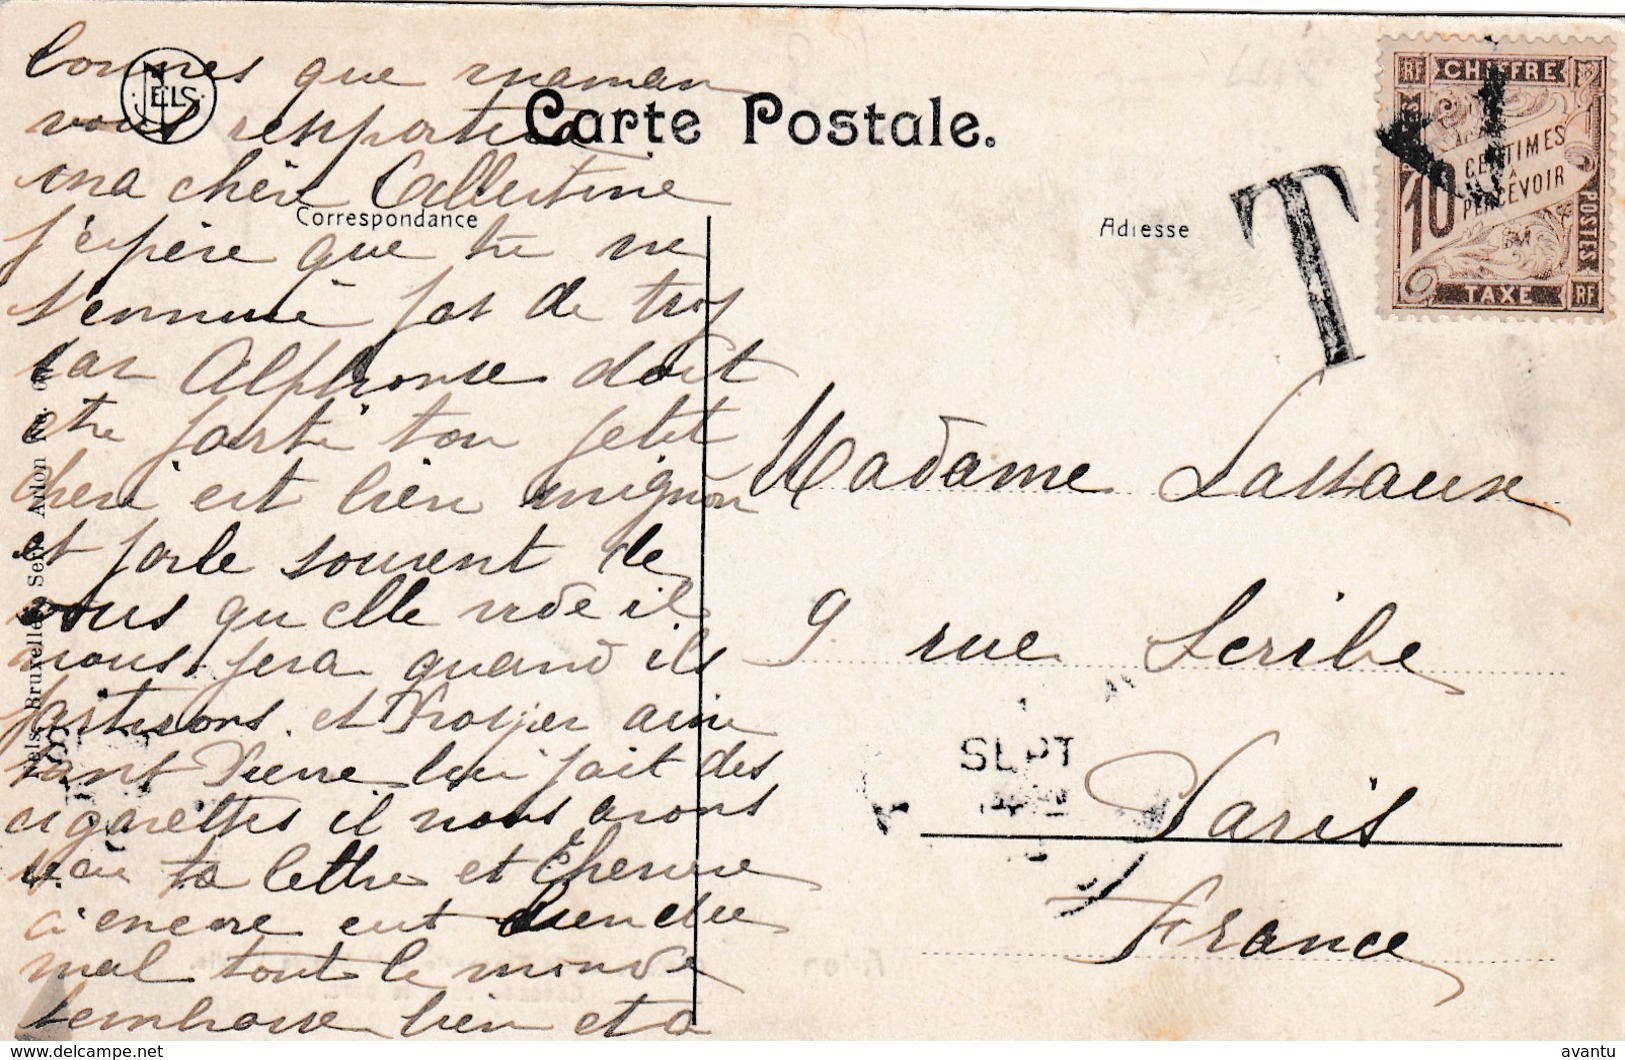 bonnes que maman
vous rapporter
ma chère Celestine
j'espère que tu ne
t'ennuie pas de trop
car Alphonse doit
etre parti ton petit
cheri est bien mignon
et parle souvent de
vous qu'elle vide il
nous fera quand ils
partirons. et Prosper aime
tant Pierre lui fait des
cigarettes il nous avons
reçu ta lettre et Etienne
à encore eut bien du
mal tout le monde
t'embrasse bien et a
NELS
Carte Postale.
Correspondance
Adresse
Nels, Bruxelles Serie Arlon No.
T
RF CHIFFRE
10 CENTIMES
À
PERCEVOIR
POSTES
TAXE RF
Madame Lassaux
9. rue Scribe
SEPT
Paris
France
delcampe.net
avantu